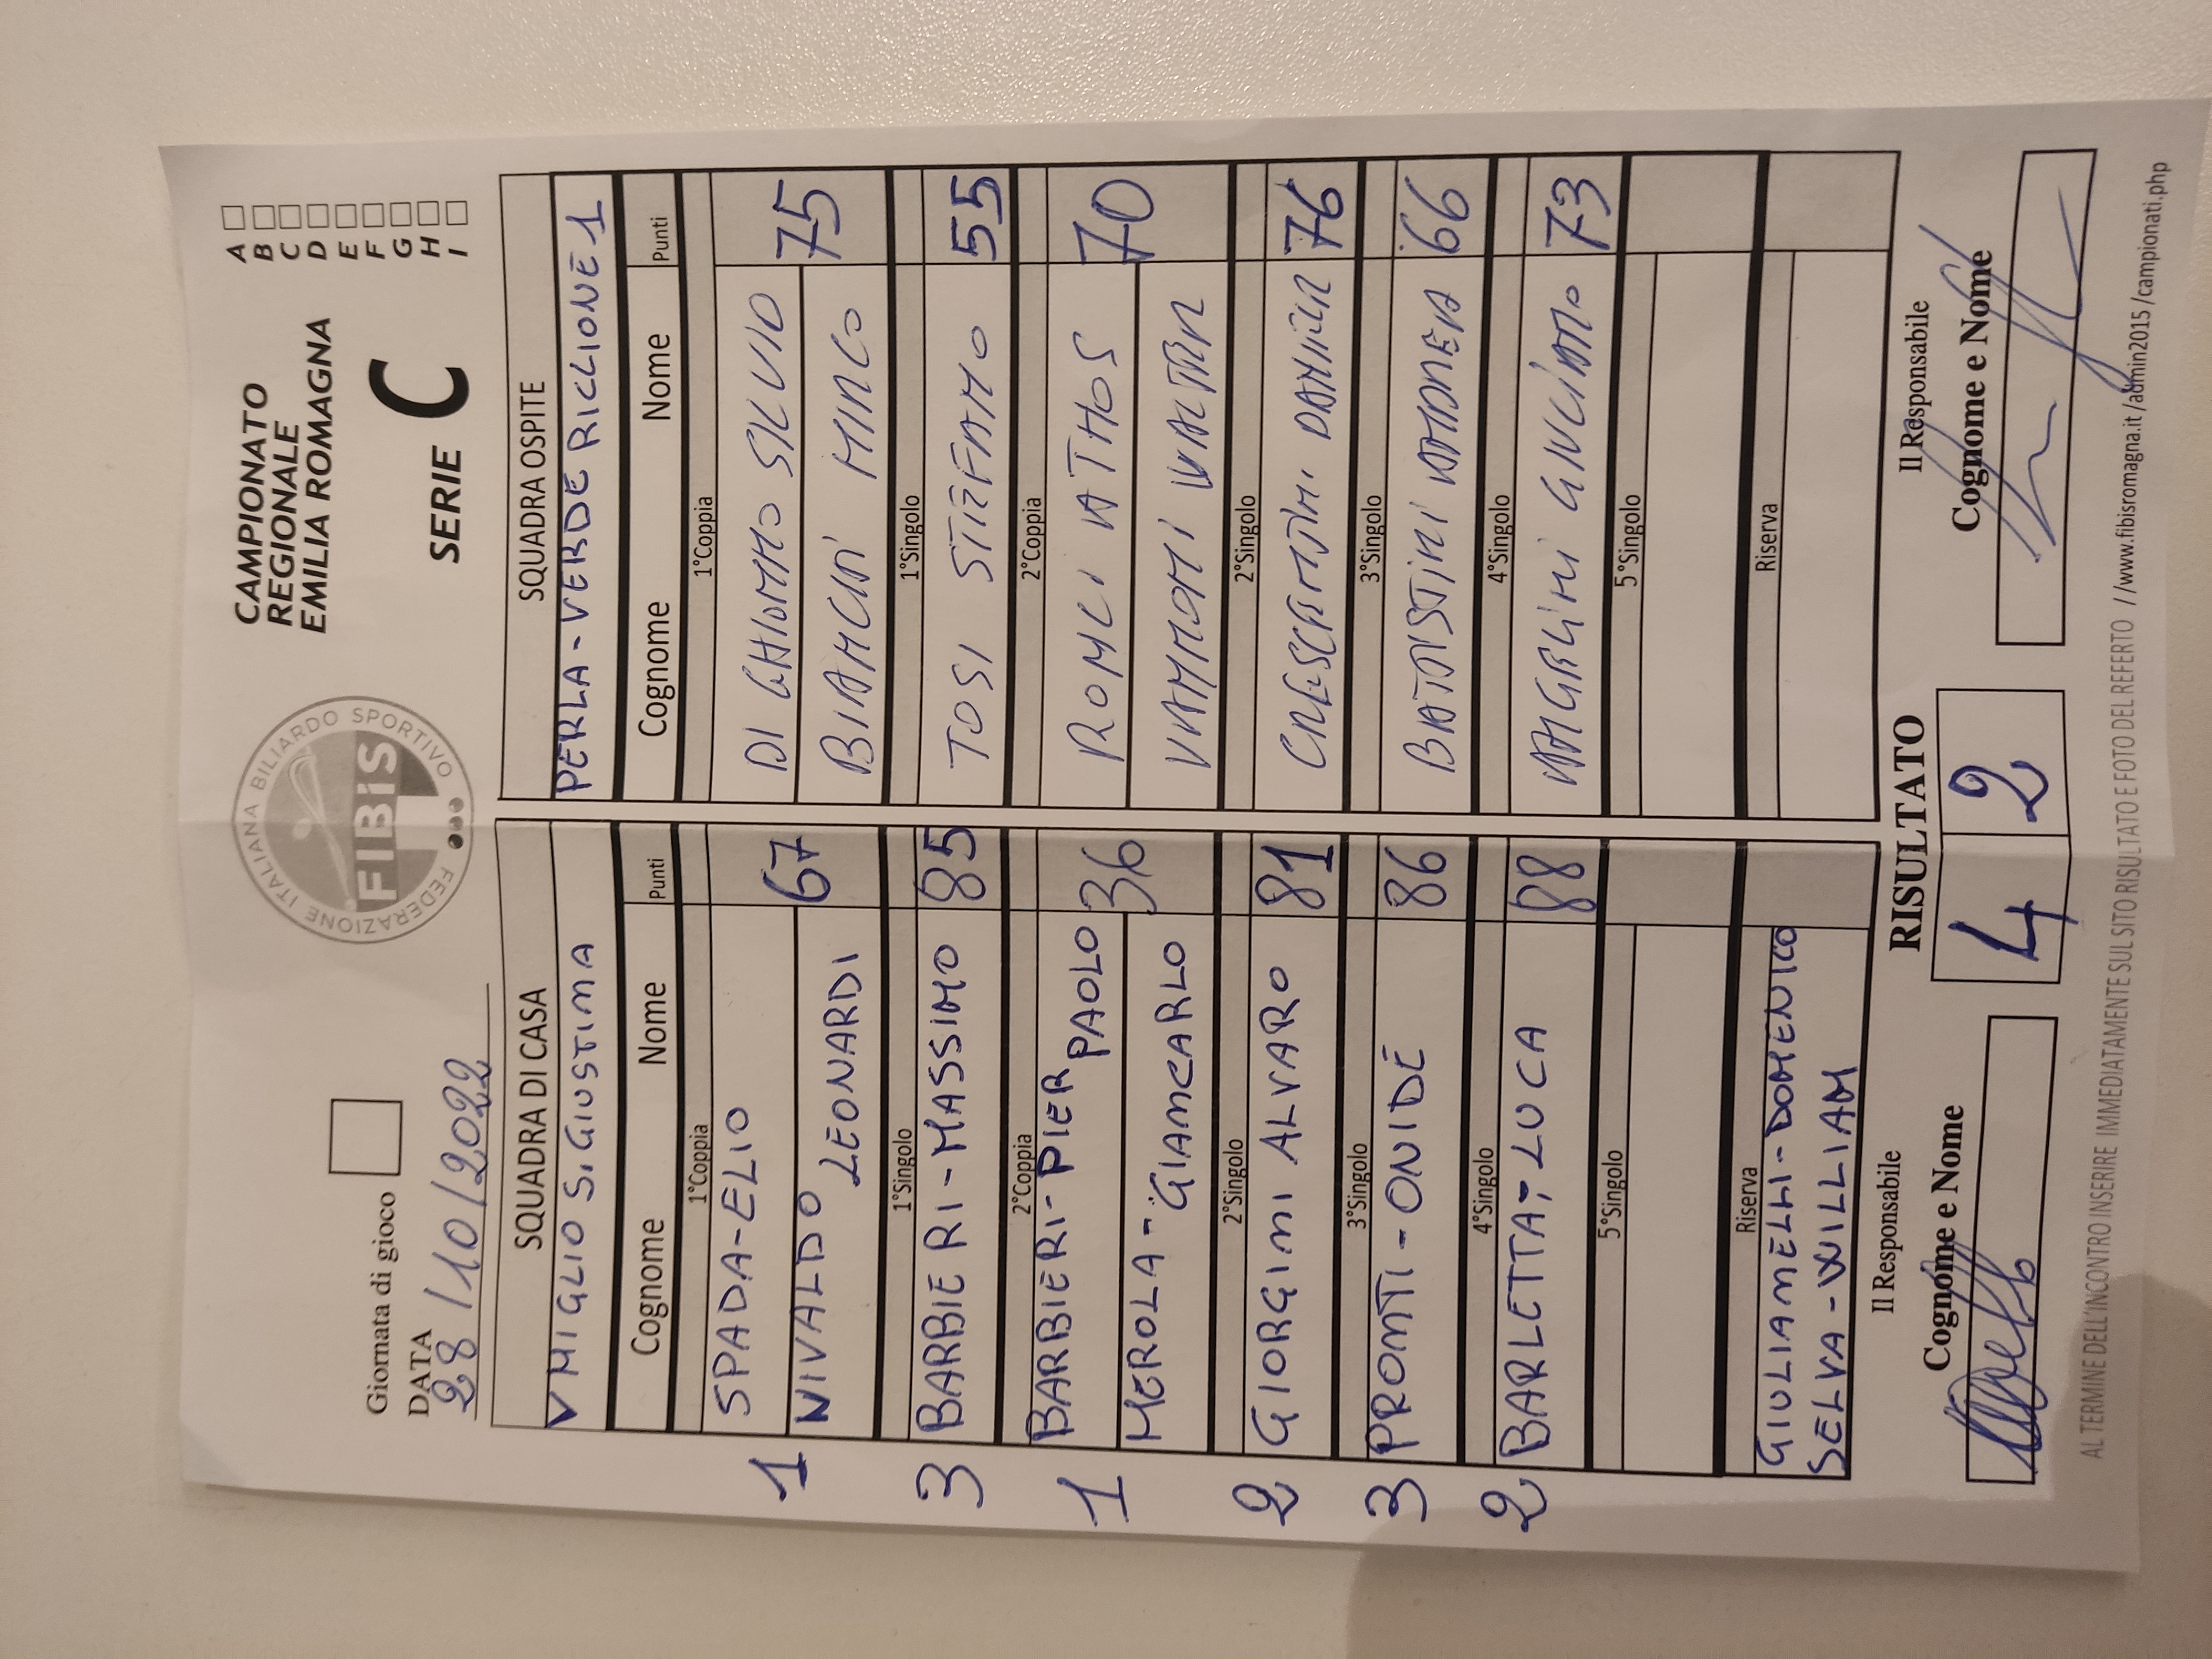 Giornata di gioco
DATA
28/10/2022
FEDERAZIONE ITALIANA BILIARDO SPORTIVO
FIBiS
CAMPIONATO
REGIONALE
EMILIA ROMAGNA
SERIE C
A
B
C
D
E
F
G
H
I
SQUADRA DI CASA
V MIGLIO S. GIUSTINA
Cognome Nome Punti
1°Coppia
SPADA-ELIO
NIVALDO LEONARDI 67
1
1°Singolo
3 BARBIERI-MASSIMO 85
2°Coppia
BARBIERI-PIER PAOLO 36
1 MEROLA-GIANCARLO
2°Singolo
2 GIORGINI ALVARO 81
3°Singolo
3 PRONTI-ONIDE 86
4°Singolo
2 BARLETTA-LUCA 88
5°Singolo
Riserva
GIULIANELLI-DOMENICO
SELVA-WILLIAM
SQUADRA OSPITE
PERLA-VERDE RICCIONE 1
Cognome Nome Punti
1°Coppia
DI GHIONNO SILVIO 75
BIANCHI MIRCO
1°Singolo
TOSI STEFANO 55
2°Coppia
RONCI ATHOS 70
VANNONI WALTER
2°Singolo
76
3°Singolo
BATTISTINI ANDREA 66
4°Singolo
73
5°Singolo
Riserva
Il Responsabile
Cognome e Nome
RISULTATO
4 2
Il Responsabile
Cognome e Nome
AL TERMINE DELL'INCONTRO INSERIRE IMMEDIATAMENTE SUL SITO RISULTATO E FOTO DEL REFERTO //www.fibisromagna.it/admin2015/campionati.php